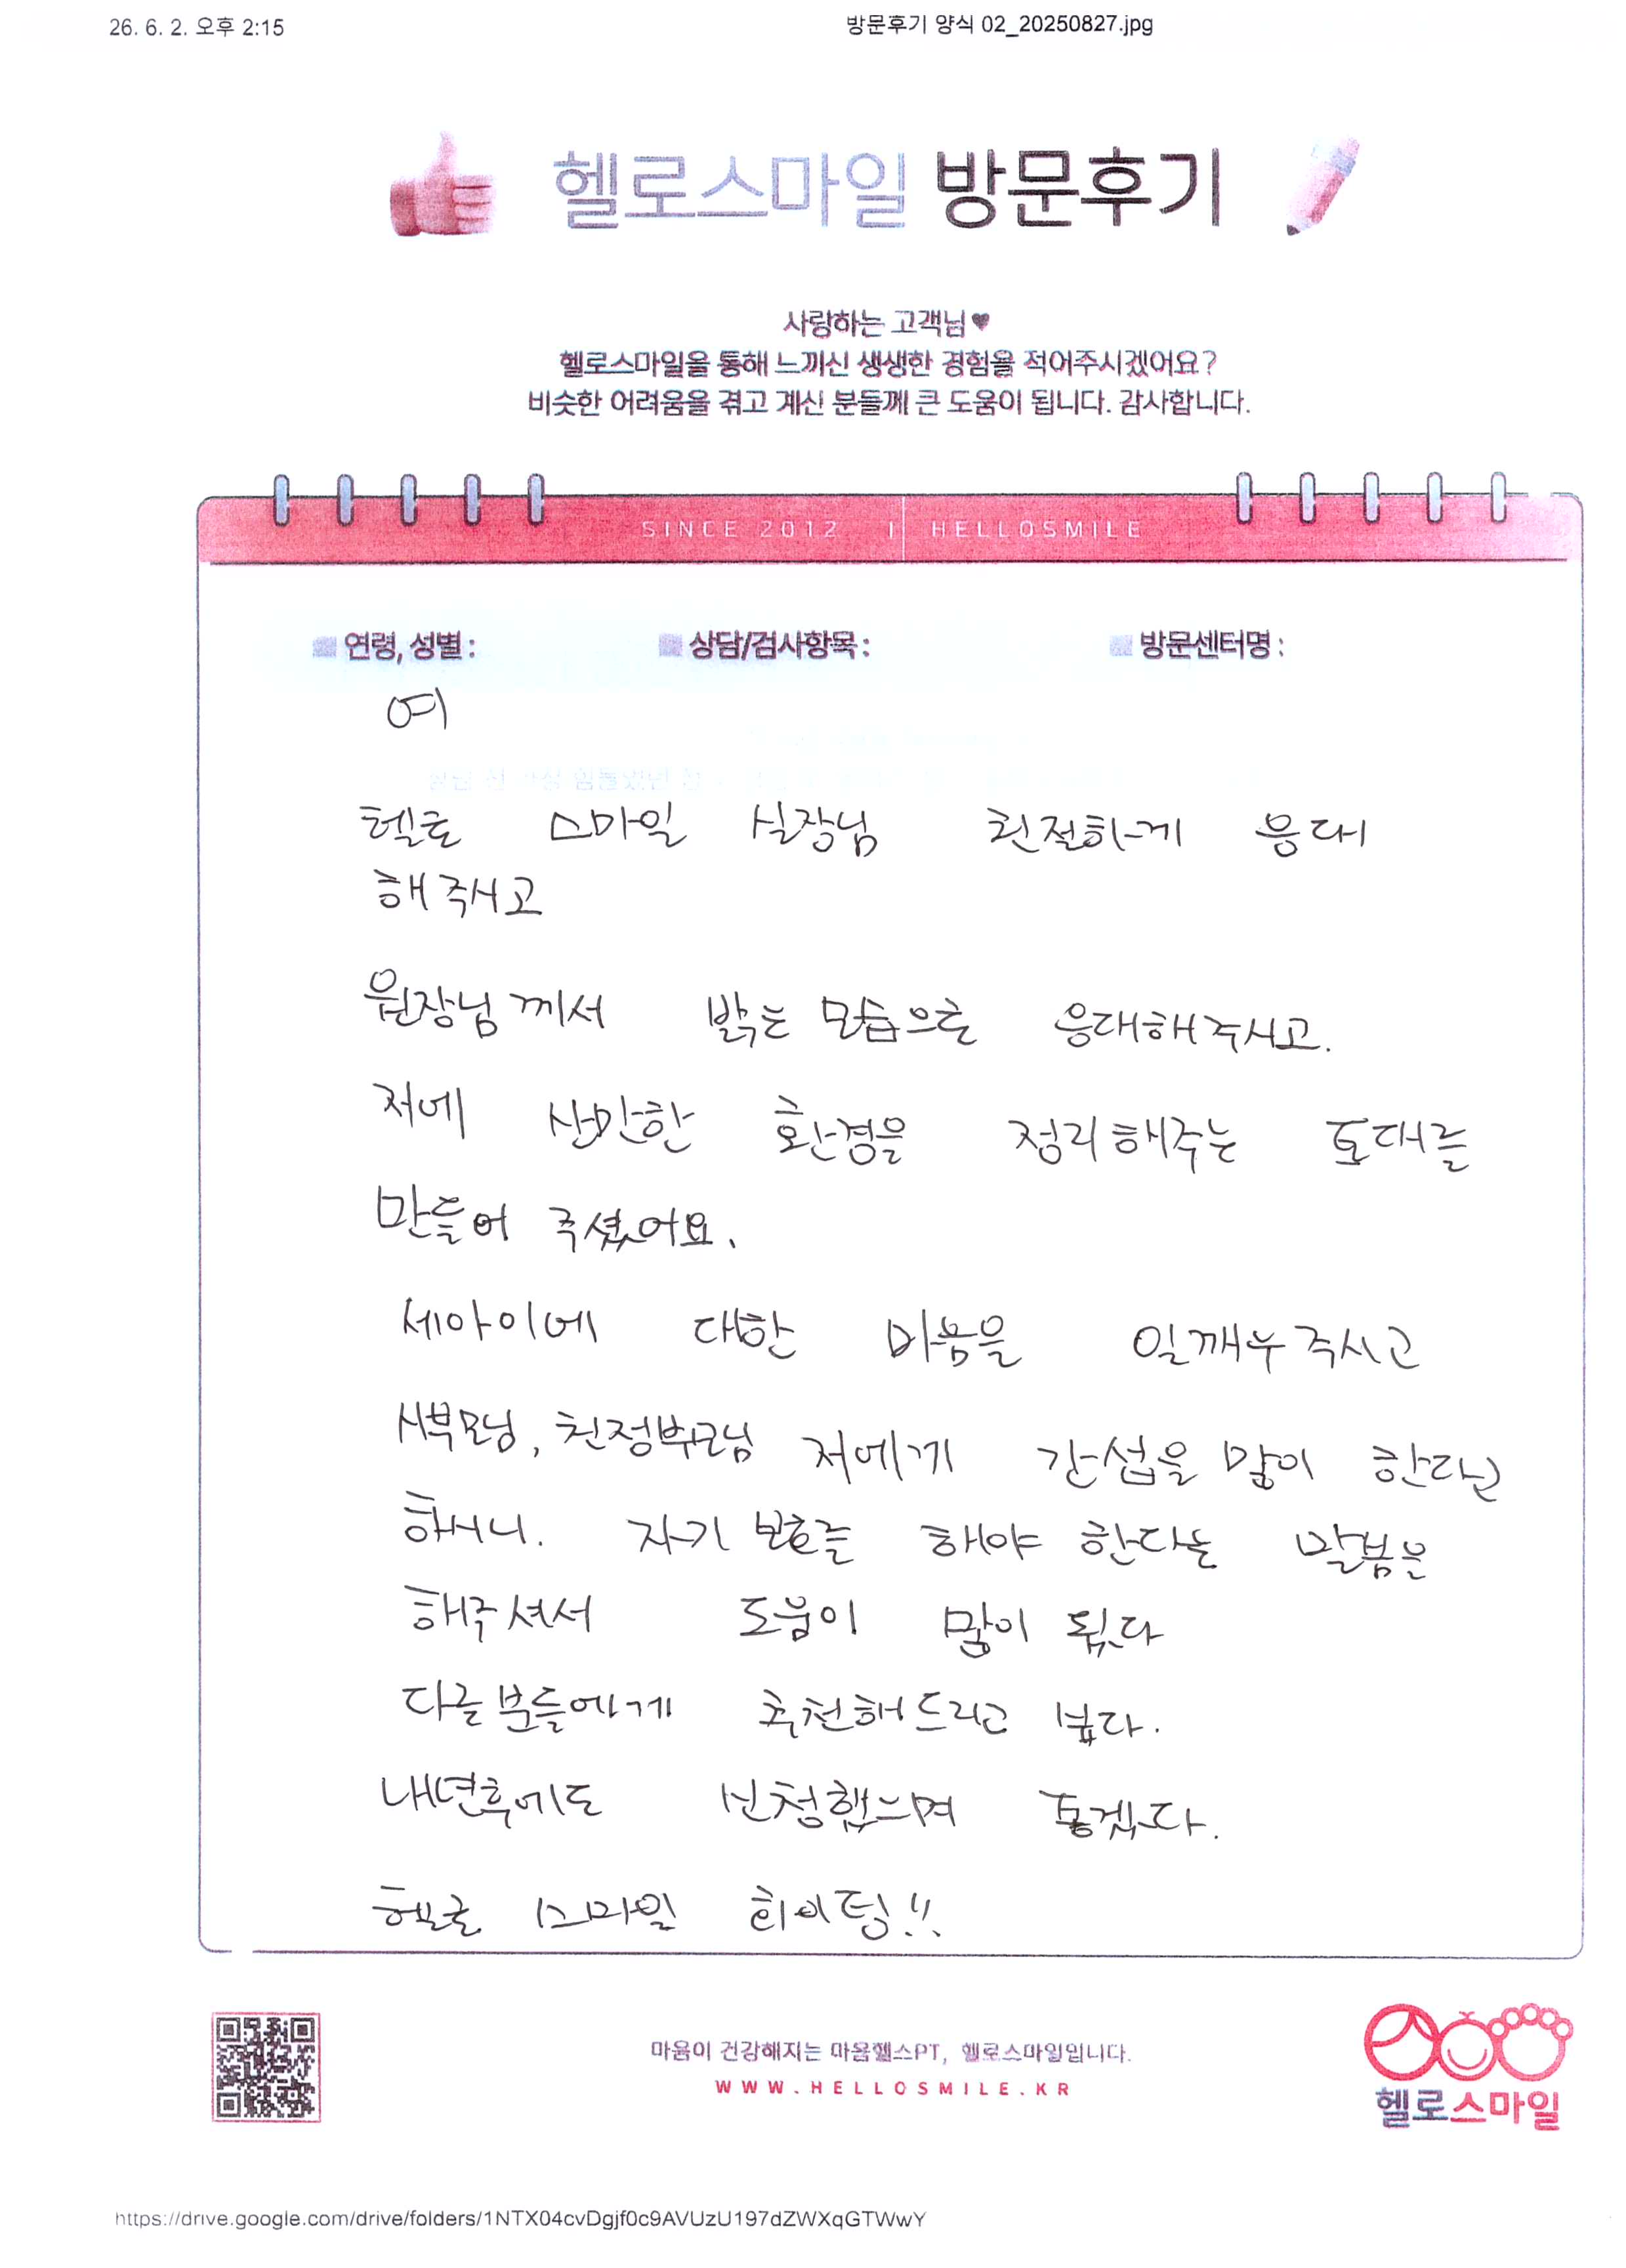 26. 6. 2. 오후 2:15
방문후기 양식 02_20250827.jpg
헬로스마일 방문후기
사랑하는 고객님♥
헬로스마일을 통해 느끼신 생생한 경험을 적어주시겠어요?
비슷한 어려움을 겪고 계신 분들께 큰 도움이 됩니다. 감사합니다.
SINCE 2012 | HELLOSMILE
연령, 성별 : 상담/검사항목 : 방문센터명 :
여
헬로 스마일 실장님 친절하게 응대
해주시고
원장님께서 밝은 모습으로 응대해주시고.
저에 산만한 환경을 정리해주는 토대를
만들어 주셨어요.
세아이에 대한 마음을 일깨누주시고
시부모님, 친정부모님 저에게 간섭을 많이 한다고
하시니. 자기 보호를 해야 한다는 말씀을
해주셔서 도움이 많이 됬다
다른분들에게 추천해드리고 싶다.
내년후에도 신청했으며 좋겠다.
헬로 스마일 화이팅!!
마음이 건강해지는 마음헬스PT, 헬로스마일입니다.
WWW.HELLOSMILE.KR
헬로스마일
https://drive.google.com/drive/folders/1NTX04cvDgjf0c9AVUzU197dZWXqGTWwY